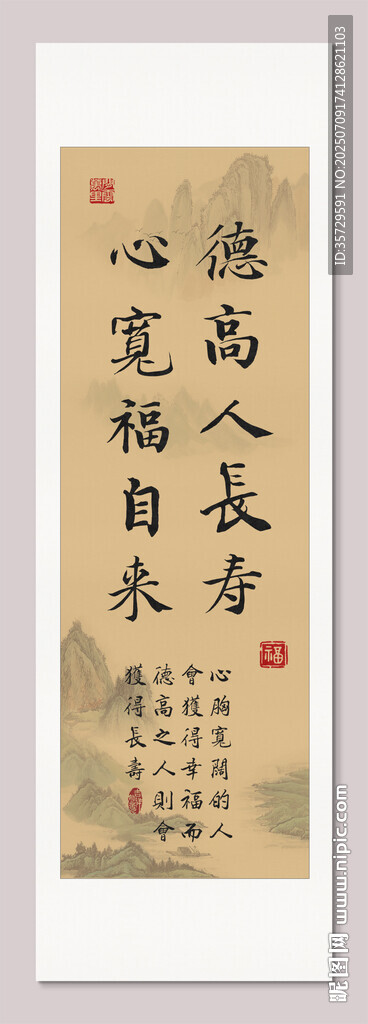 德高人長寿
心寬福自来
福
心胸寬闊的人
會獲得幸福而
德高之人則會
獲得長壽
ID:35729591 NO:20250709174128621103
昵图网 www.nipic.com